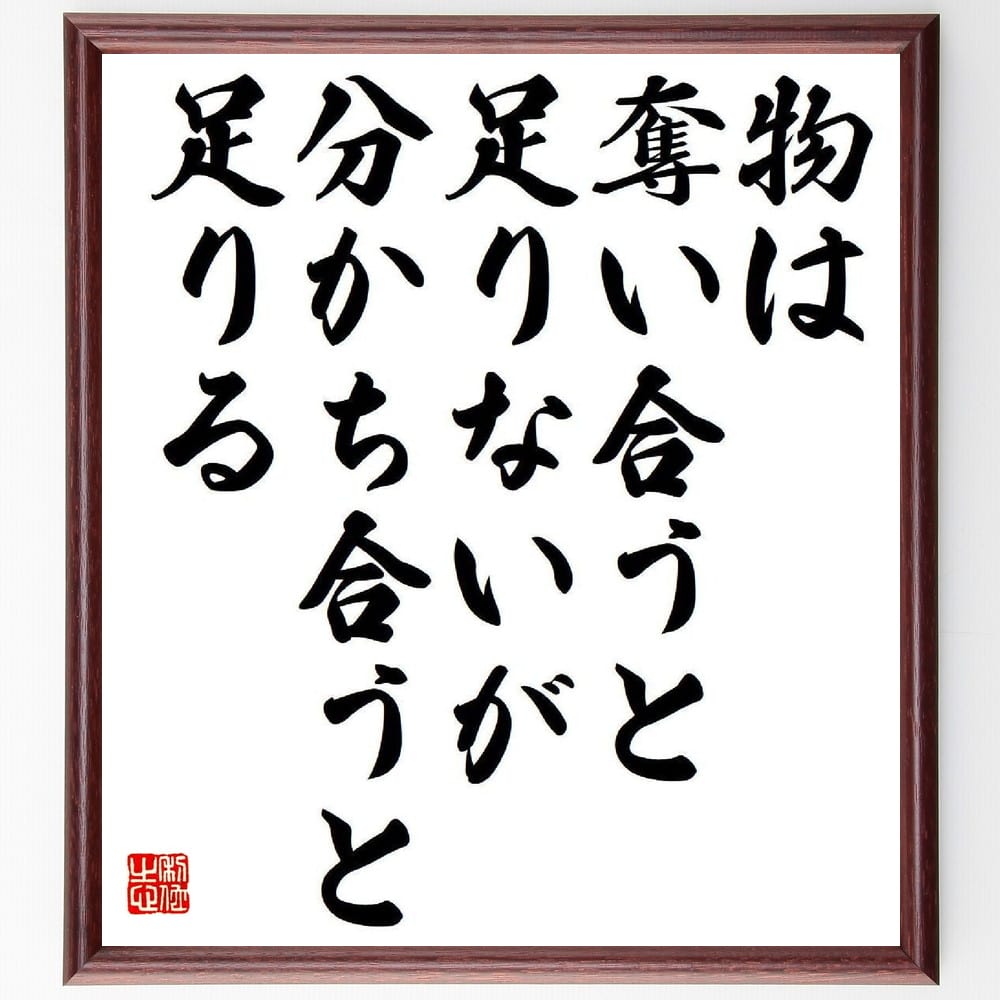 物は
奪い合うと
足りないが
分かち合うと
足りる